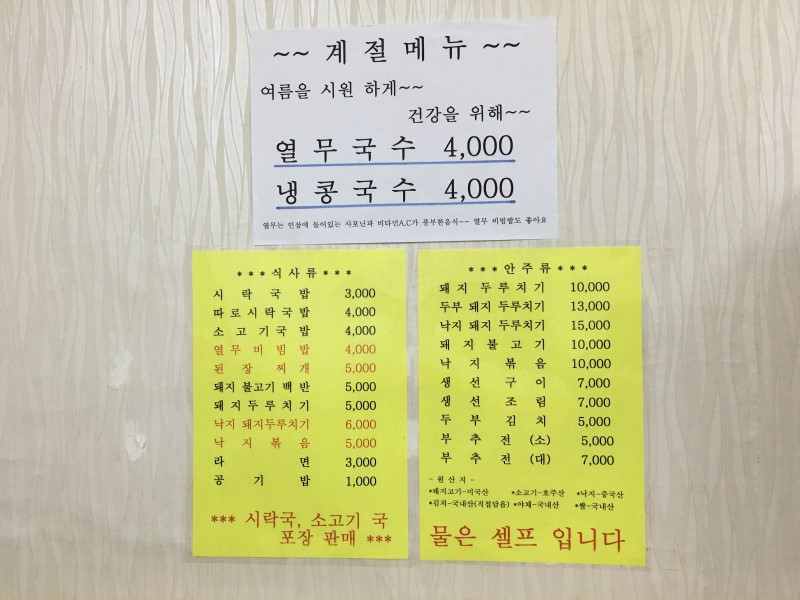 ~~ 계절메뉴 ~~
여름을 시원 하게~~
건강을 위해~~
열무국수 4,000
냉콩국수 4,000
열무는 인삼에 들어있는 사포닌과 비타민A,C가 풍부한음식~~ 열무 비빔밥도 좋아요
***식사류***
시락국밥 3,000
따로시락국밥 4,000
소고기국밥 4,000
열무비빔밥 4,000
된장찌개 5,000
돼지 불고기 백반 5,000
돼지두루치기 5,000
낙지 돼지두루치기 6,000
낙지볶음 5,000
라면 3,000
공기밥 1,000
*** 시락국, 소고기 국
포장 판매 ***
***안주류***
돼지 두루치기 10,000
두부 돼지 두루치기 13,000
낙지 돼지 두루치기 15,000
돼지불고기 10,000
낙지볶음 10,000
생선구이 7,000
생선조림 7,000
두부김치 5,000
부추전 (소) 5,000
부추전 (대) 7,000
- 원산지 -
*돼지고기-미국산 *소고기-호주산 *낙지-중국산
*김치-국내산(직접담음) *야채-국내산 *쌀-국내산
물은 셀프 입니다